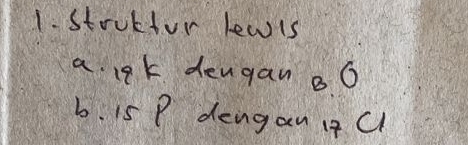 1. Struktur lewis
a. 19 K dengan 8 O
b. 15 P dengan 17 Cl